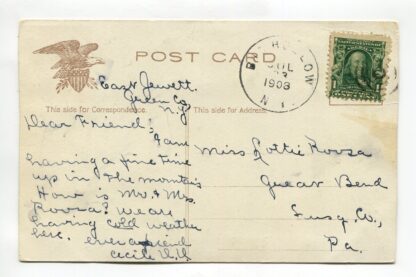 POST CARD
East Jewett.
Green Co,
N.Y.
This side for Correspondence.
This side for Address.
LOW
JUL
1908
N.Y.
Dear Friend:
I am
having a fine time
up in the mountis
How is Mr. & Mrs.
Roosa? we are
having cold weather
here. ever a friend
Cecile
Miss Lottie Roosa
Great Bend
Susq. Co.,
Pa.